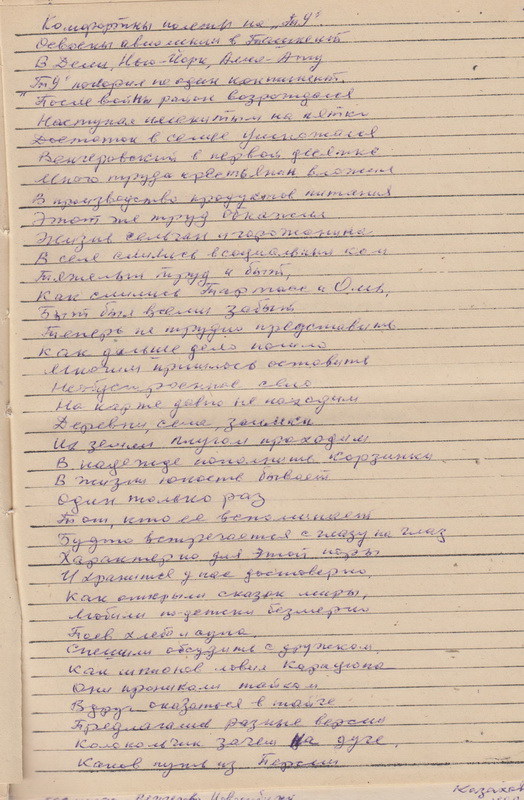 Комфортны полеты на „ТУ".
Освоены авиалинии в Ташкент
В Дели, Нью-Йорк, Алма-Ату
„ТУ" покорил не один континент.
После войны район возрождался
Наступая целинным на пятки
Достаток в семье умножался
Венгеровский в первой десятке
Много труда крестьянин вложил
В производство продуктов питания
Этот же труд
Жизнь сельчан и горожанина
В селе слились в социальный ком
Тяжелый труд и быт,
Как слились Тартас и Омь,
Быт был всеми забыт
Теперь не трудно представить
Как дальше дело пошло
Многим пришлось оставить
Необустроенное село
На карте давно не находим
Деревни, села, заимки
Их земли плугом проходим
В надежде пополнить корзинки
В жизни юность бывает
Один только раз
Тот, кто ее вспоминает
Будто встречается с глазу на глаз
Характерно для этой поры
И хранится у нас достоверно,
Как открыли сказок миры,
Любили по-детски безмерно
Поев хлеба
Спешили обсудить с дружком,
Как шпионов ловил Карацупа
Они проникали тайком
Вдруг оказаться в тайге
Предлагали разные версии
Колокольчик зачем на дуге,
Каков путь из Персии
Казахст